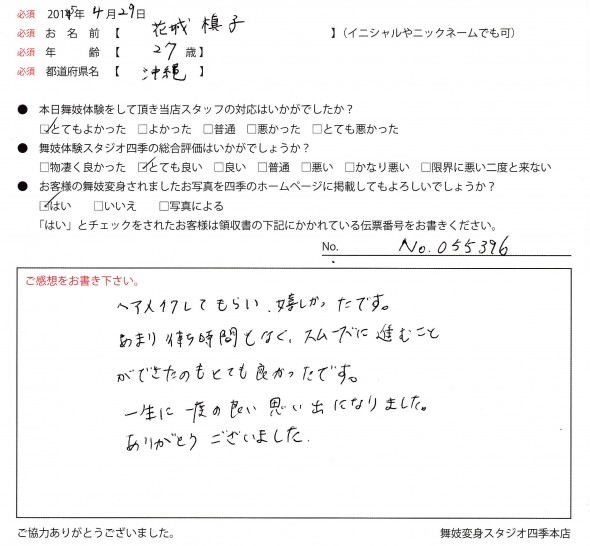 必須 2015年 4月29日
必須 お 名 前 【 花城 槙子 】(イニシャルやニックネームでも可)
必須 年 齢 【 27 歳】
必須 都道府県名 【 沖縄 】
● 本日舞妓体験をして頂き当店スタッフの対応はいかがでしたか?
☑とてもよかった □よかった □普通 □悪かった □とても悪かった
● 舞妓体験スタジオ四季の総合評価はいかがでしょうか?
□物凄く良かった ☑とても良い □良い □普通 □悪い □かなり悪い □限界に悪い二度と来ない
● お客様の舞妓変身されましたお写真を四季のホームページに掲載してもよろしいでしょうか?
☑はい □いいえ □写真による
「はい」とチェックをされたお客様は領収書の下記にかかれている伝票番号をお書きください。
No. No.055396
ご感想をお書き下さい。
ヘアメイクしてもらい、嬉しかったです。
あまり待ち時間もなく、スムーズに進むこと
ができたのもとても良かったです。
一生に一度の良い思い出になりました。
ありがとうございました.
ご協力ありがとうございました。
舞妓変身スタジオ四季本店